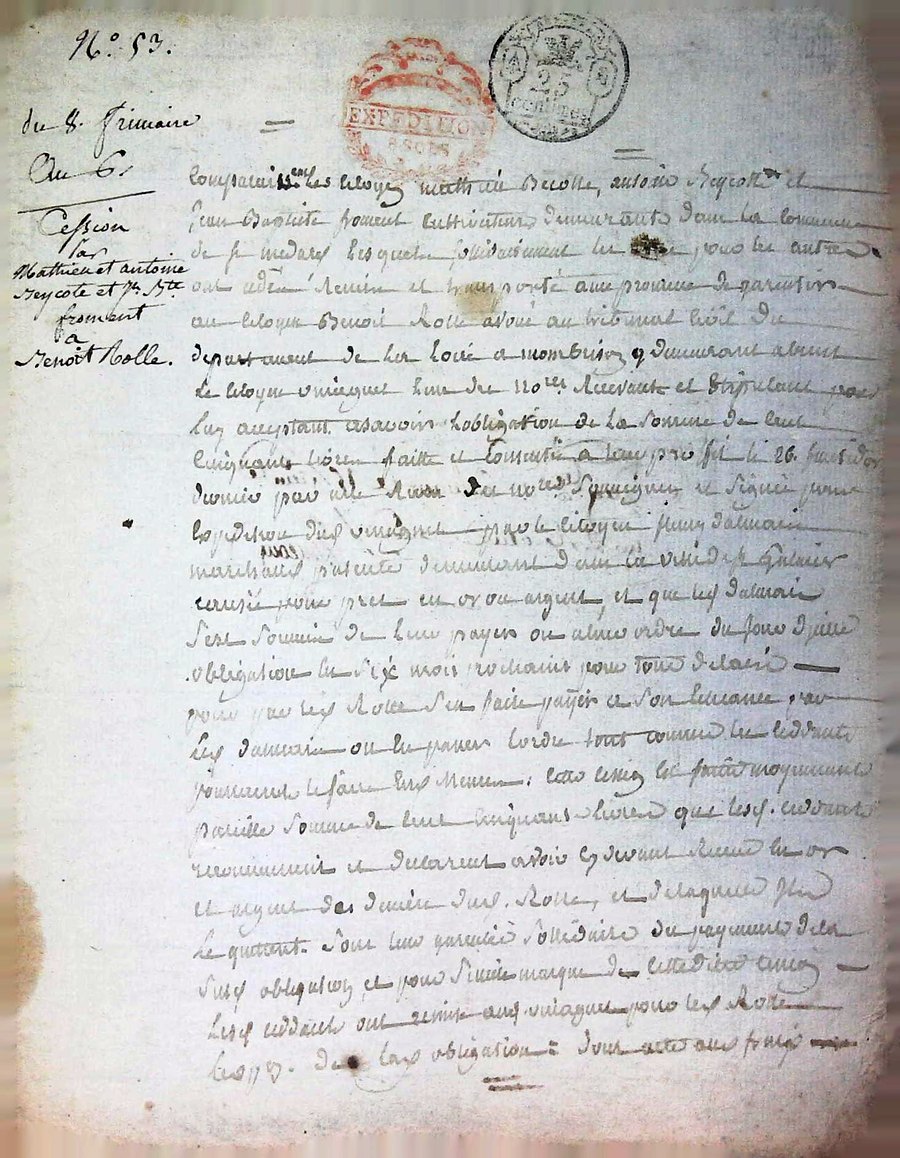 N.° 53.
EXPÉDITION
25
centimes
du 8. frimaire
an 6.
Cession
par
Mathieu et antoine
Reycote et Jn Bte
froment
a
Benoit Rolle.
les citoyens mathieu antoine Reycotte et
jean Baptiste froment cultivateurs demeurants dans la commune
de st medard lesquels solidairement les pour les autres
ont cédé Remis et transporté avec promesse de garentir
au citoyen Benoit Rolle avoué au tribunal civil du
departement de la loire a montbrison y demeurant absent
le citoyen l'un des nores Recevant et stipulant pour
luy acceptant asavoir l'obligation de la somme de cent
cinquante livres faitte et consentie a leur profit le 26.
dernier par acte Recu des nores soussignes et signé pour
expedition par le citoyen dalmais
marchand demeurant dans la ville de st galmier
causée pour pret en or ou argent, et que led dalmais
s'est soumis de leur payer ou a leur ordre du jour de ditte
obligation en six mois prochains pour tout delais
pour que led Rolle s'en faire payer a son echeance par
led dalmais ou en passer l'ordre tout comme les ceddants
pourraient le faire eux memes. cette cession est faitte moyennant
pareille somme de cent cinquante livres que lesd. ceddants
reconnaissent et declarent avoir cy devant Recue en or
et argent des deniers dud. Rolle, et de laquelle ils
le quittent. sous leur garentie solidaire du payement de la
susd obligation, et pour marque de cette ditte cession
lesd ceddants ont remis pour led Rolle
de lad obligation = dont acte aux frais